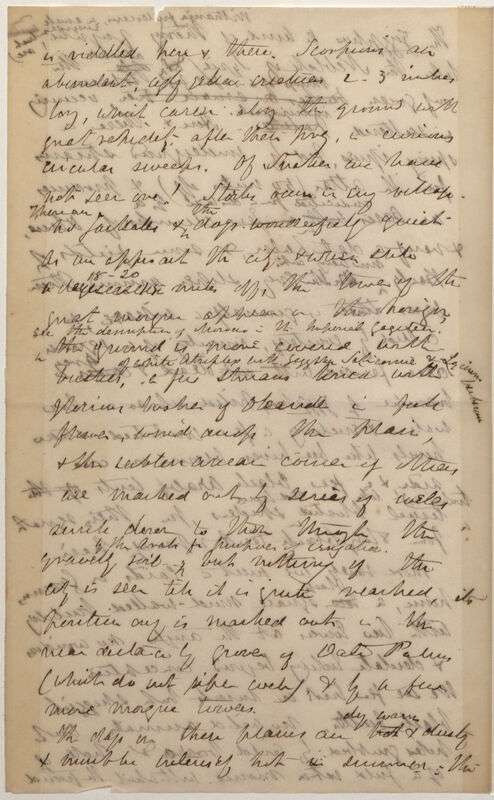 is riddled here & there. Scorpions are
abundant, ugly yellow creatures 2-3 inches
long, which career along the ground with
great rapidity after their prey, in curious
circular sweeps. Of Snakes we have
not seen one! Storks occur in any village
There are
no jackals & the dogs wonderfully quiet
As we approach the city, & when still
18-20
miles off, the tower of the
great mosque appears on the horizon
see the description of Morocco in the Imperial Gazetteer.
the ground is more covered with
of white Atriplex with
bushes, a few streams lined with
glorious bushes of Oleander in full
flower, wind across the plain,
& the subterranean course of others
are marked out by series of wells
sunk down to them through the
by the Arabs for purposes of irrigation.
gravelly soil, but nothing of the
city is seen till it is quite reached its
position only is marked out in the
near distance by groves of Date Palms
(which do not ripen well) & by a few
more mosque towers.
dry warm
The days in these plains are hot & dusty
& must be intensely hot in summer - the